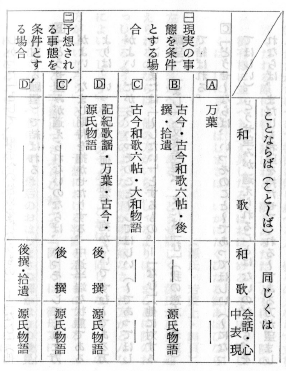 ことならば（こと〜ば）
同じくは
和歌
和歌
会話・心
中表現
㈠現実の事
態を条件
とする場
合
A
万葉
―
―
B
古今・古今和歌六帖・後
撰・拾遺
―
源氏物語
C
古今和歌六帖・大和物語
―
―
D
記紀歌謡・万葉・古今・
源氏物語
後撰
源氏物語
㈡予想され
る事態を
条件とす
る場合
C′
―
後撰
源氏物語
D′
後撰・拾遺
源氏物語